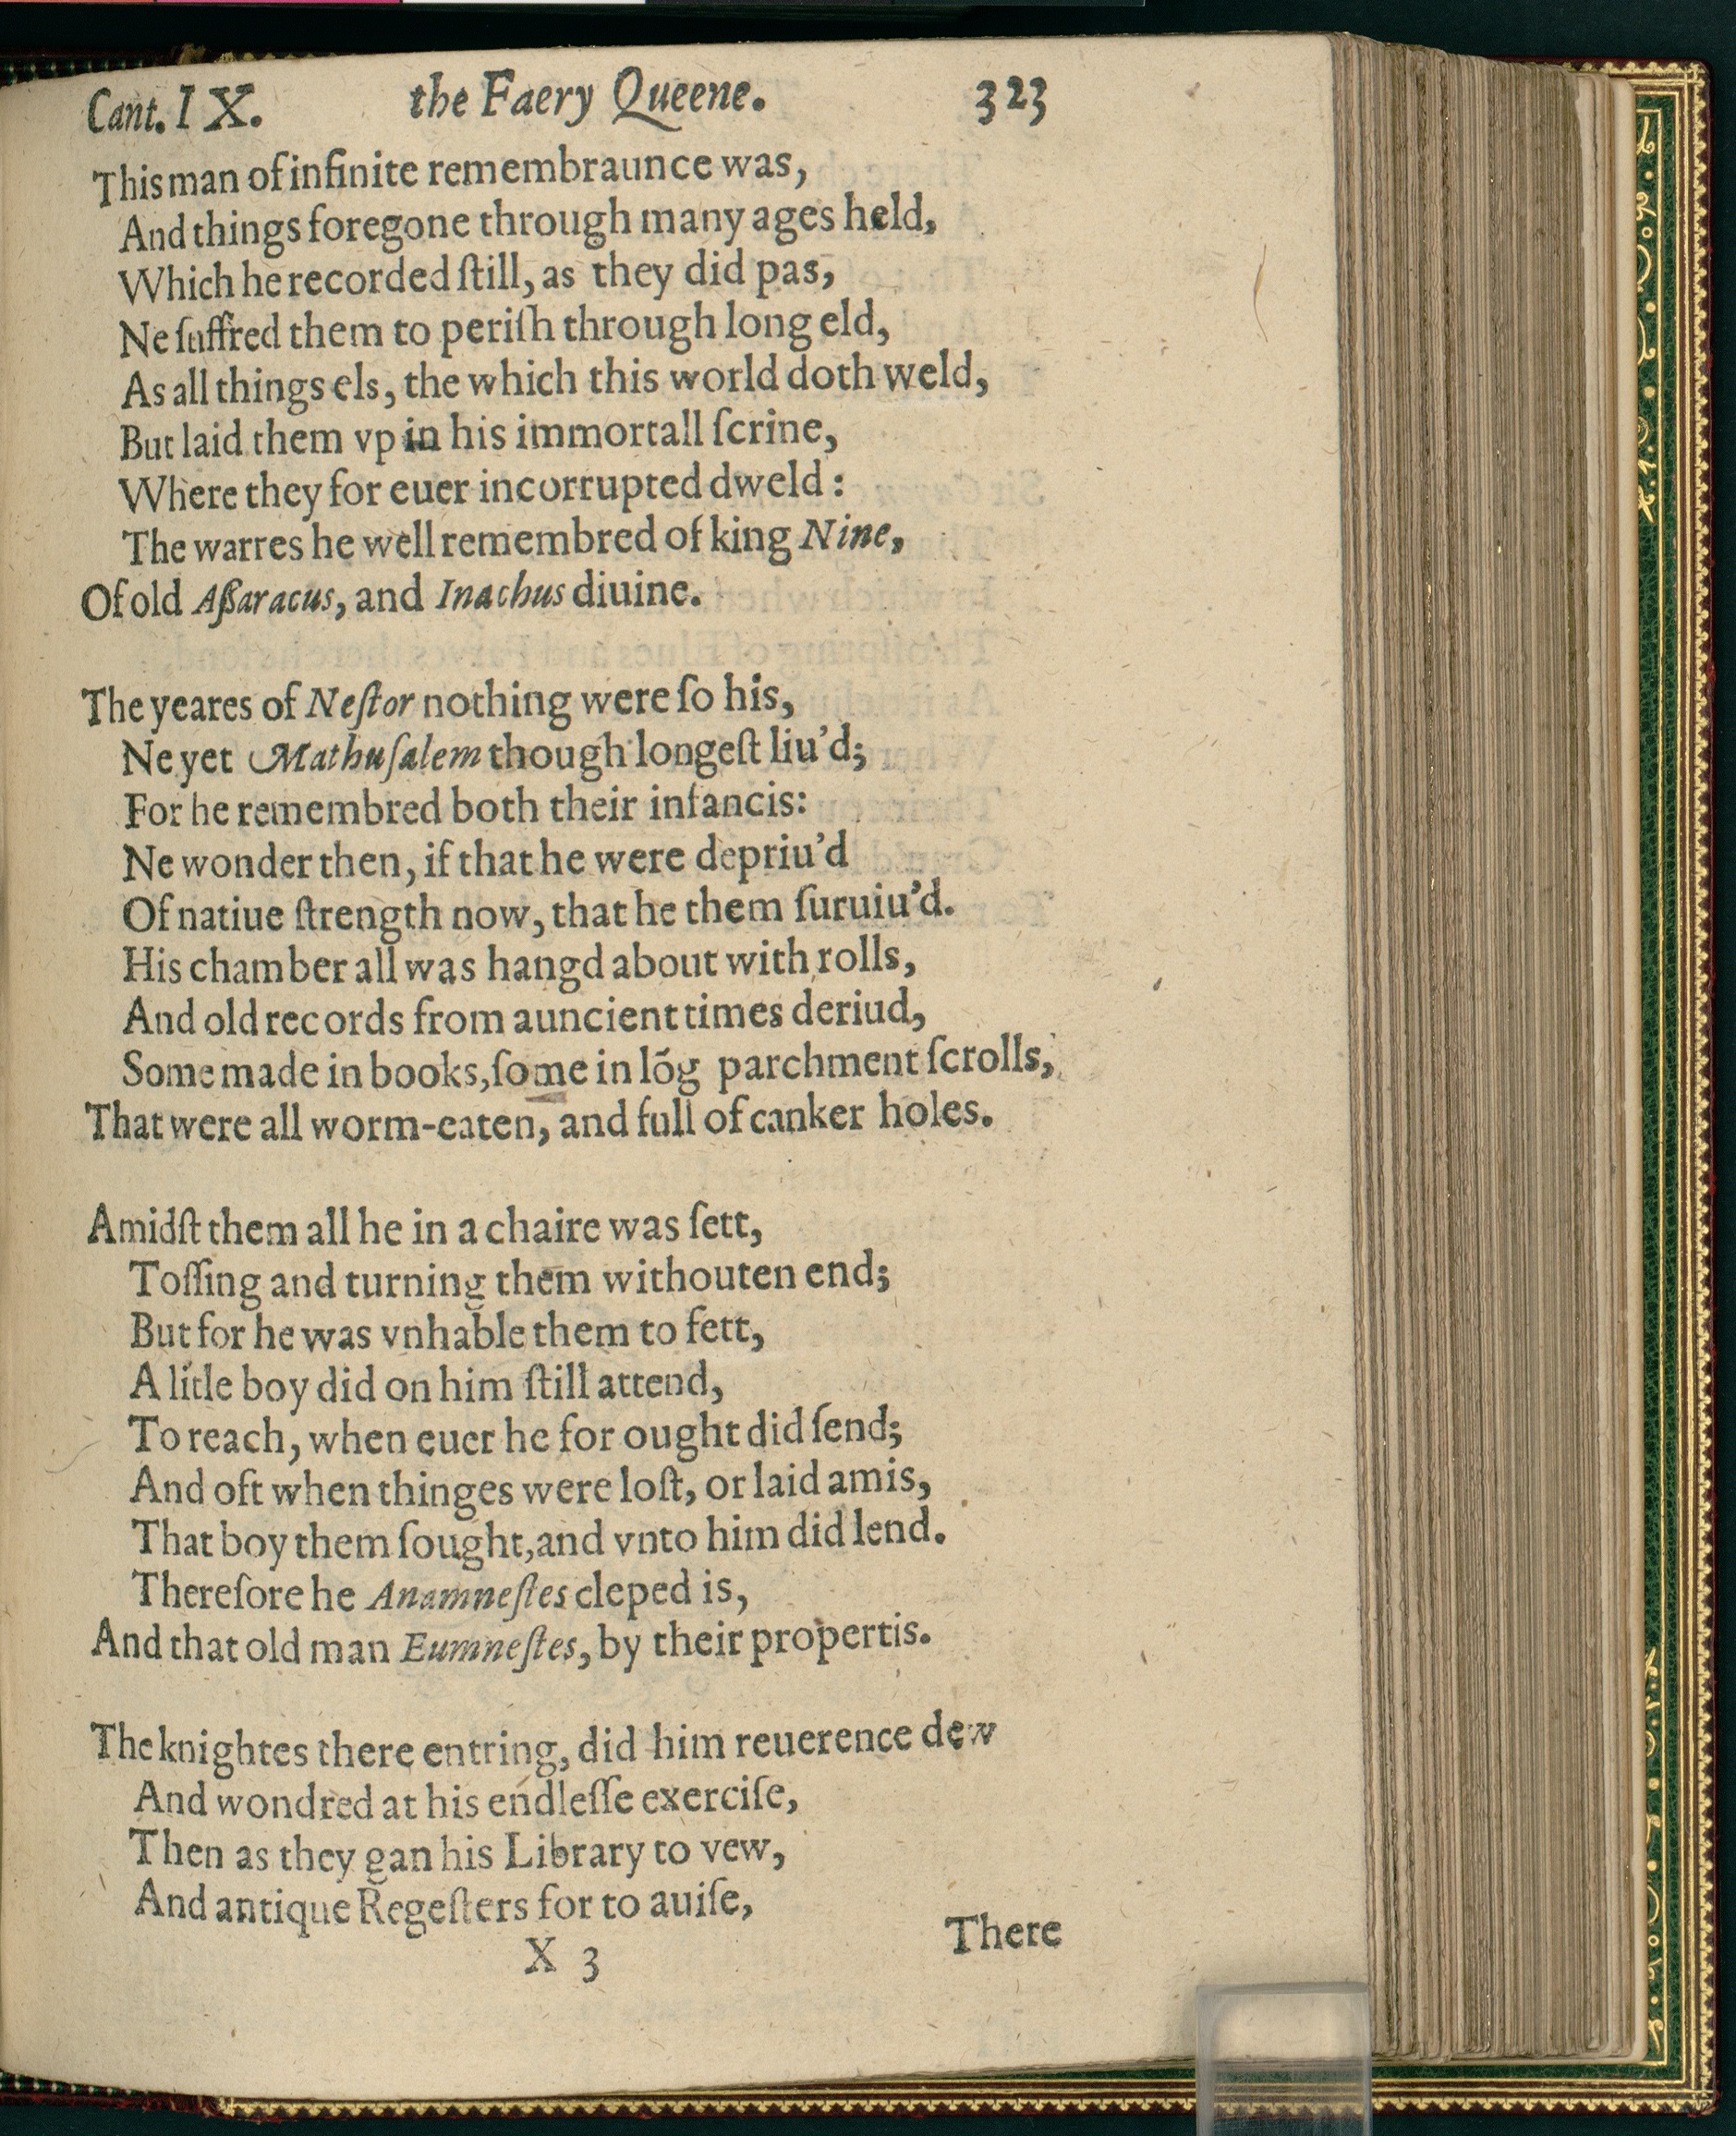 Cant. I X. the Faery Queene. 323
This man of infinite remembraunce was,
And things foregone through many ages held,
Which he recorded ſtill, as they did pas,
Ne ſuffred them to periſh through long eld,
As all things els, the which this world doth weld,
But laid them vp in his immortall ſcrine,
Where they for euer incorrupted dweld:
The warres he well remembred of king Nine,
Of old Aſſaracus, and Inachus diuine.
The yeares of Neſtor nothing were ſo his,
Ne yet Mathuſalem though longeſt liu'd;
For he remembred both their infancis:
Ne wonder then, if that he were depriu'd
Of natiue ſtrength now, that he them ſuruiu'd.
His chamber all was hangd about with rolls,
And old records from auncient times deriud,
Some made in books, ſome in lõg parchment ſcrolls,
That were all worm-eaten, and full of canker holes.
Amidſt them all he in a chaire was ſett,
Toſſing and turning them withouten end;
But for he was vnhable them to fett,
A litle boy did on him ſtill attend,
To reach, when euer he for ought did ſend;
And oft when thinges were loſt, or laid amis,
That boy them ſought, and vnto him did lend.
Therefore he Anamneſtes cleped is,
And that old man Eumneſtes, by their propertis.
The knightes there entring, did him reuerence dew
And wondred at his endleſſe exerciſe,
Then as they gan his Library to vew,
And antique Regeſters for to auiſe,
X 3 There